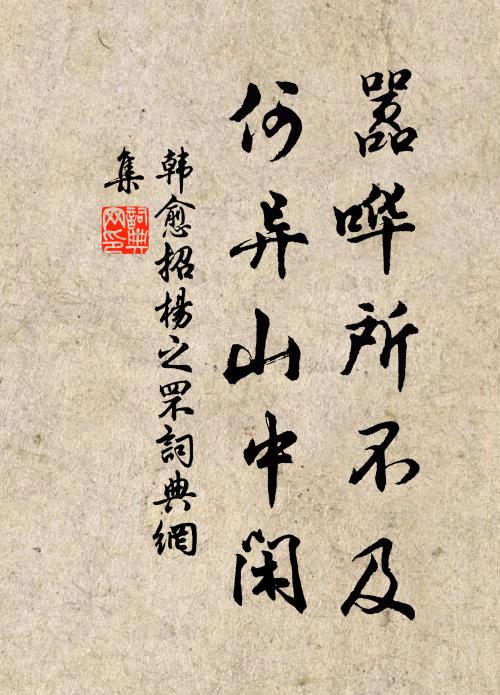 嚣哗所不及
何异山中闲
韩愈招杨之罘词典網
集
詞典
网印